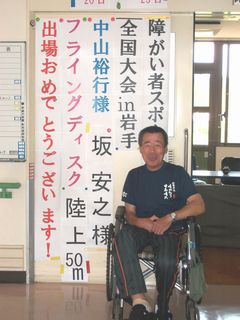 障がい者スポ
全国大会in岩手
坂 安之様 陸上50m
中山裕行様
フライングディスク
出場おめでとうございます!